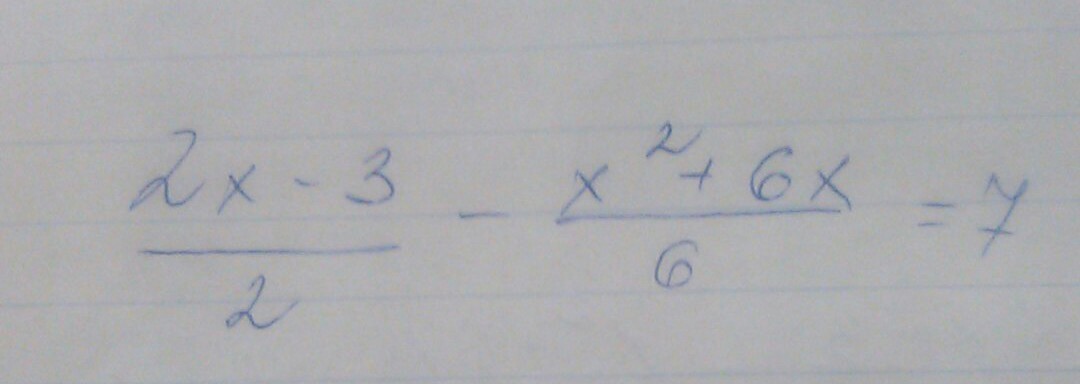 \frac{2x-3}{2} - \frac{x^2+6x}{6} = 7